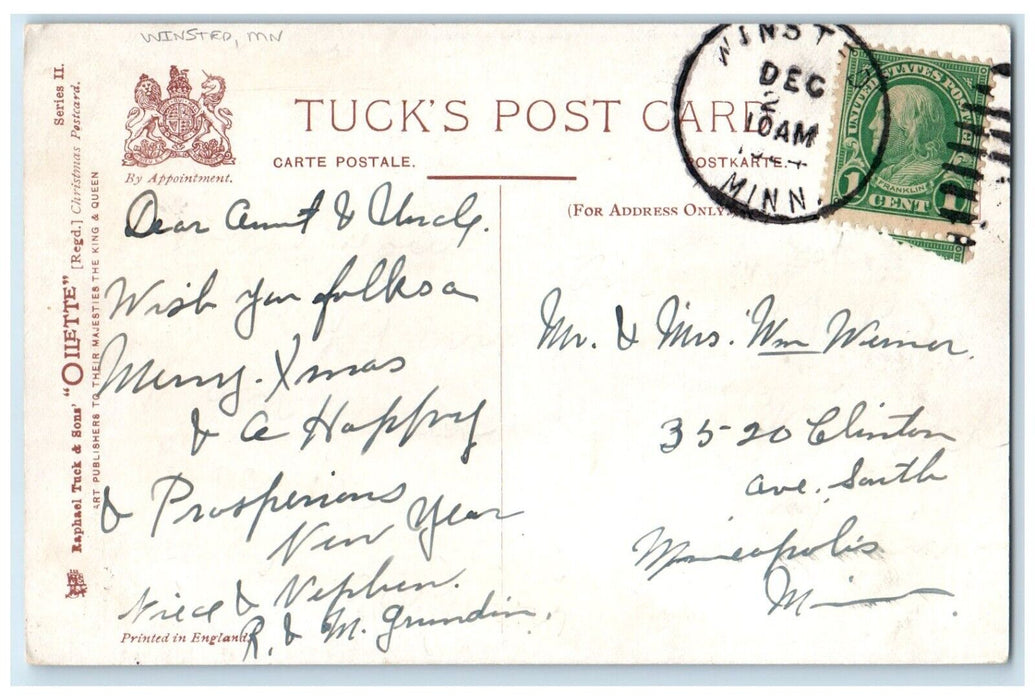 WINSTED, MN
Series II.
Raphael Tuck & Sons' "OILETTE" [Regd.] Christmas Postcard.
ART PUBLISHERS TO THEIR MAJESTIES THE KING & QUEEN
By Appointment.
TUCK'S POST CARD
CARTE POSTALE.
POSTKARTE.
(FOR ADDRESS ONLY.
WINST
DEC
10AM
MINN.
UNITED STATES POSTA
FRANKLIN
1 CENT 1
Dear Aunt & Uncle.
Wish you folks a
Merry. Xmas
& a Happy
& Prosperious
New Year
Niece & Nephew.
R. & M. Grundin.
Printed in England.
Mr. & Mrs. Wm Werner.
35-20 Clinton
ave. South
Minneapolis
Minn.